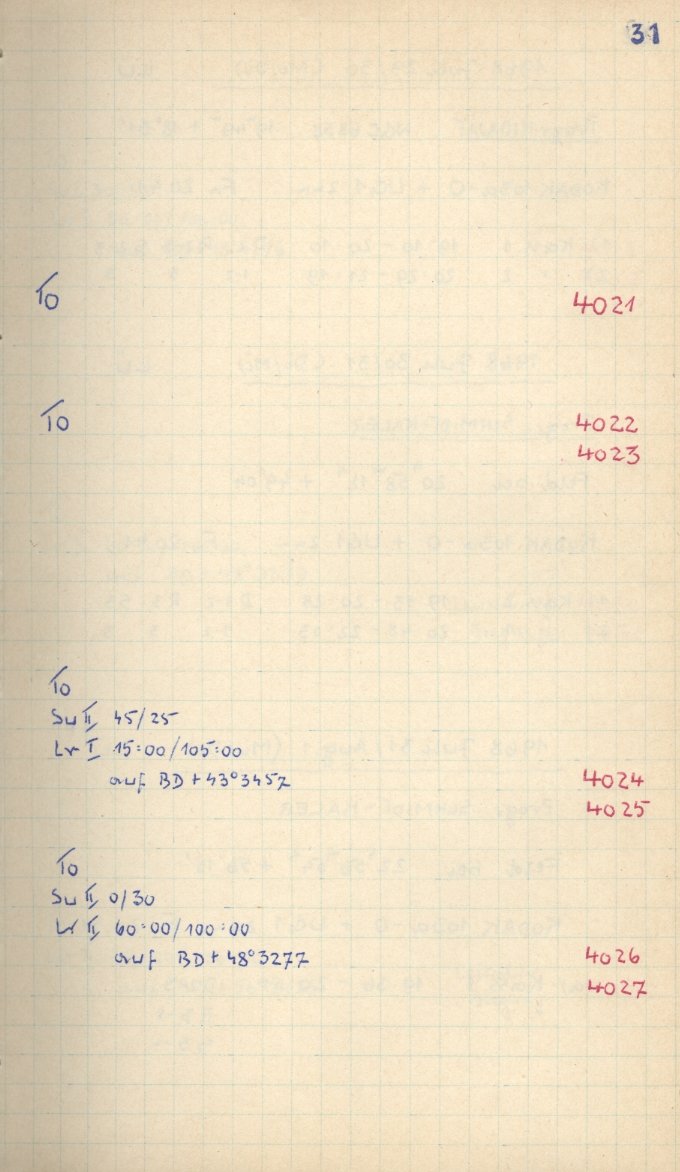 31
To 4021
To 4022
4023
To
Su II 45/25
Lr I 15:00/105:00
auf BD+43°3457 4024
4025
To
Su II 0/30
Lr II 60:00/100:00
auf BD+48°3277 4026
4027